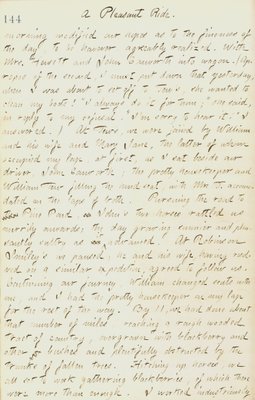 144
A Pleasant Ride.
morning modified our hopes as to the fineness of
the day to be however agreeably realized. With
Mrs. and John into wagon. (Apropos
of the second I must put down that yesterday,
when I was about to set off to Tew's, she wanted to
clean my boots! "I always do it for him," she said,
in reply to my refusal. "I'm sorry to hear it!" I
answered.) At Tews, we were joined by William
and his wife and Mary Jane, the latter of whom
occupied my lap at first, as I sat beside our
driver, John; the pretty housekeeper and
William Tew filling the hind seat, with Mrs T. accom-
dated on the laps of both. Pursuing the road to
Paid John's two horses rattled us
merrily onwards; the day growing sunnier and plea-
santly sultry as we advanced. At Robinson
Smiley's we paused, he and his wife, having
on a similar expedition, agreed to follow us.
Continuing our journey, William changed seats with
me, and I had the pretty housekeeper on my lap
for the rest of the way. By 11, we had done about
that number of miles, reaching a rough wooded
tract of country, overgrown with blackberry and
other bushes and plentifully obstructed by the
trunks of fallen trees. Hitching up horses, we
all set to work gathering blackberries, of which there
were more than enough. I worked industriously